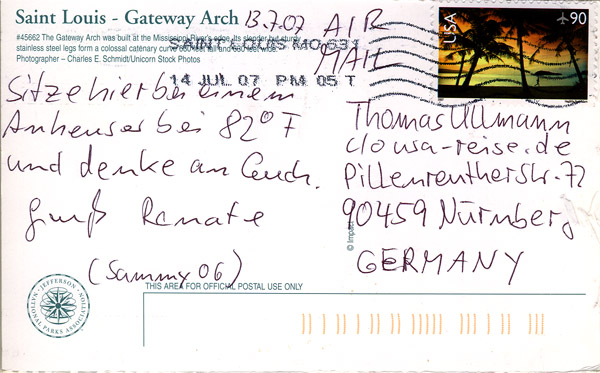 Saint Louis - Gateway Arch 13.7.07 AIR MAIL
#45662 The Gateway Arch was built at the Mississippi River's edge. Its slender but sturdy
stainless steel legs form a colossal catenary curve 630 feet tall and 630 feet wide.
Photographer - Charles E. Schmidt/Unicorn Stock Photos
SAINT LOUIS MO 631
14 JUL 07 PM 05 T
USA
90
Sitze hier bei einem
Anheuser bei 82° F
und denke an Euch.
Gruß Renate
(Sammy06)
Thomas Ullmann
c/o usa-reise.de
Pillenreutherstr. 72
90459 Nürnberg
GERMANY
© Impact
JEFFERSON NATIONAL PARKS ASSOCIATION
THIS AREA FOR OFFICIAL POSTAL USE ONLY